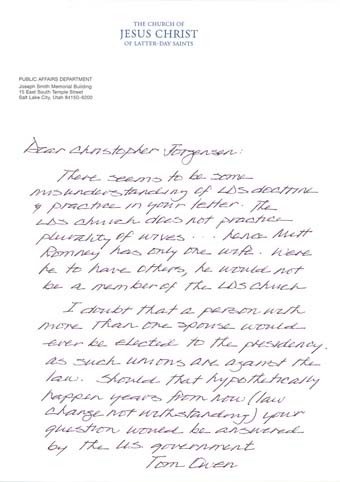 THE CHURCH OF
JESUS CHRIST
OF LATTER-DAY SAINTS
PUBLIC AFFAIRS DEPARTMENT
Joseph Smith Memorial Building
15 East South Temple Street
Salt Lake City, Utah 84150-9200
Dear Christopher Jorgensen:
There seems to be some
misunderstanding of LDS doctrine
& practice in your letter. The
LDS church does not practice
plurality of wives . . . hence Mitt
Romney has only one wife. Were
he to have others, he would not
be a member of the LDS Church
I doubt that a person with
more than one spouse would
ever be elected to the presidency.
as such unions are against the
law. Should that hypothetically
happen years from now (law
change not withstanding) your
question would be answered
by the U.S. government
Tom Owen